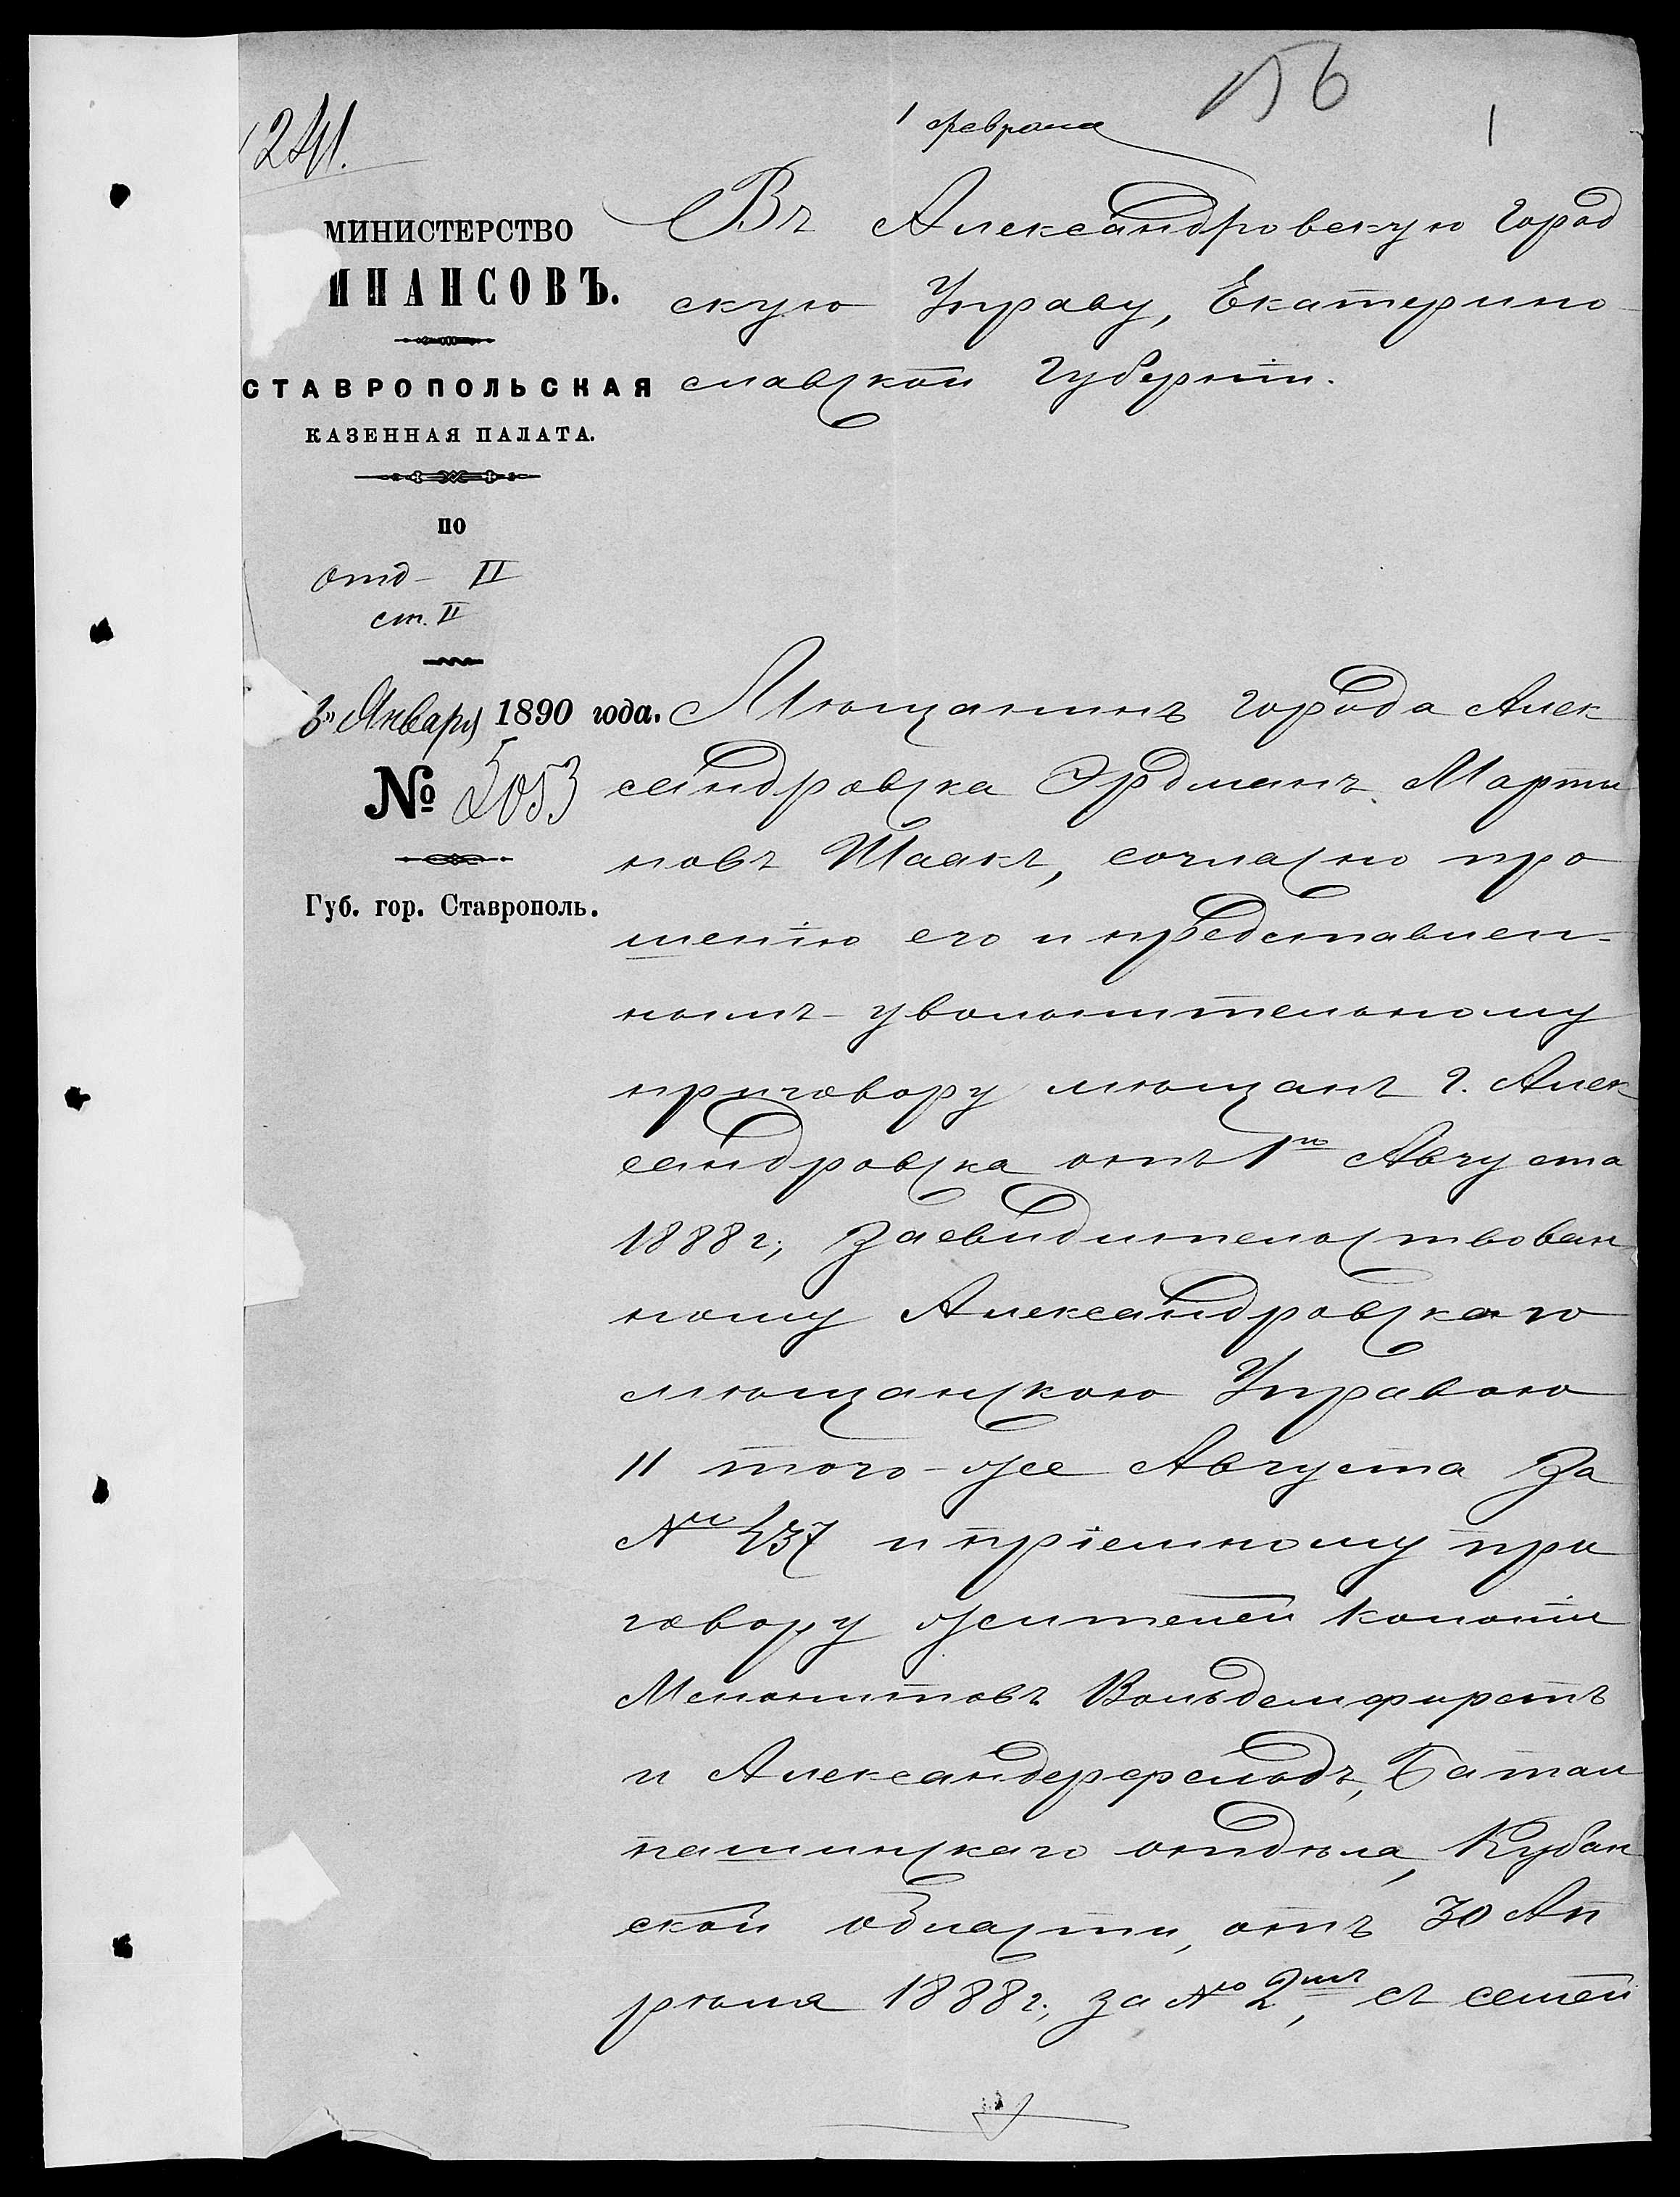 156
1 февраля
1
241.
МИНИСТЕРСТВО
ИНАНСОВЪ.
СТАВРОПОЛЬСКАЯ
КАЗЕННАЯ ПАЛАТА.
ПО
отд- II
ст. II
Января 1890 года.
№ 5053
Губ. гор. Ставрополь.
Въ Александровскую Город
скую Управу, Екатерино-
славской Губерніи.
Мѣщанинъ города Алек
сандровска Эрдманъ Марти
новъ Шаакъ, согласно про
шенію его и представлен-
номъ увольнительному
приговору мѣщанъ г. Алек
сандровска отъ 1го Августа
1888 г., засвидѣтельствован
ному Александровскаго
мѣщанскою Управою
11 того-же Августа за
№ 437 и пріемному при
говору жителей колоніи
Менонитовъ Вольдемфирстъ
и Александерфельдъ, Батал
пашинскаго отдѣла, Кубан
ской области, отъ 30 Ап
рѣля 1888 г., за № 2мъ, съ семей